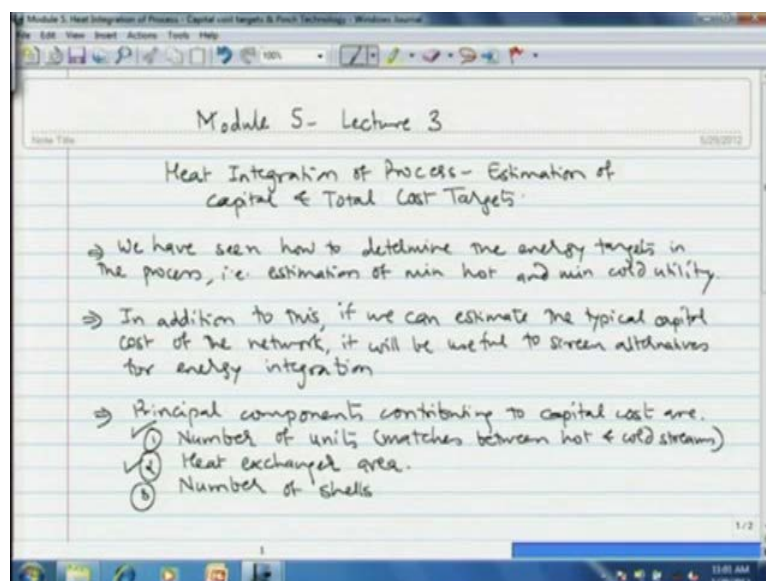 Module 5. Heat Integration of Process - Capital cost targets & Pinch Technology - Windows Journal
File Edit View Insert Actions Tools Help
100%
Module 5- Lecture 3
Note Title
5/29/2012
Heat Integration of Process- Estimation of
capital & Total Cost Targets.
⇒ We have seen how to determine the energy targets in
the process, i.e. estimation of min hot and min cold utility.
⇒ In addition to this, if we can estimate the typical capital
cost of the network, it will be useful to screen alternatives
for energy integration
⇒ Principal components contributing to capital cost are.
① Number of units (matches between hot & cold streams)
② Heat exchanger area.
③ Number of shells
1/2
1
11:01 AM